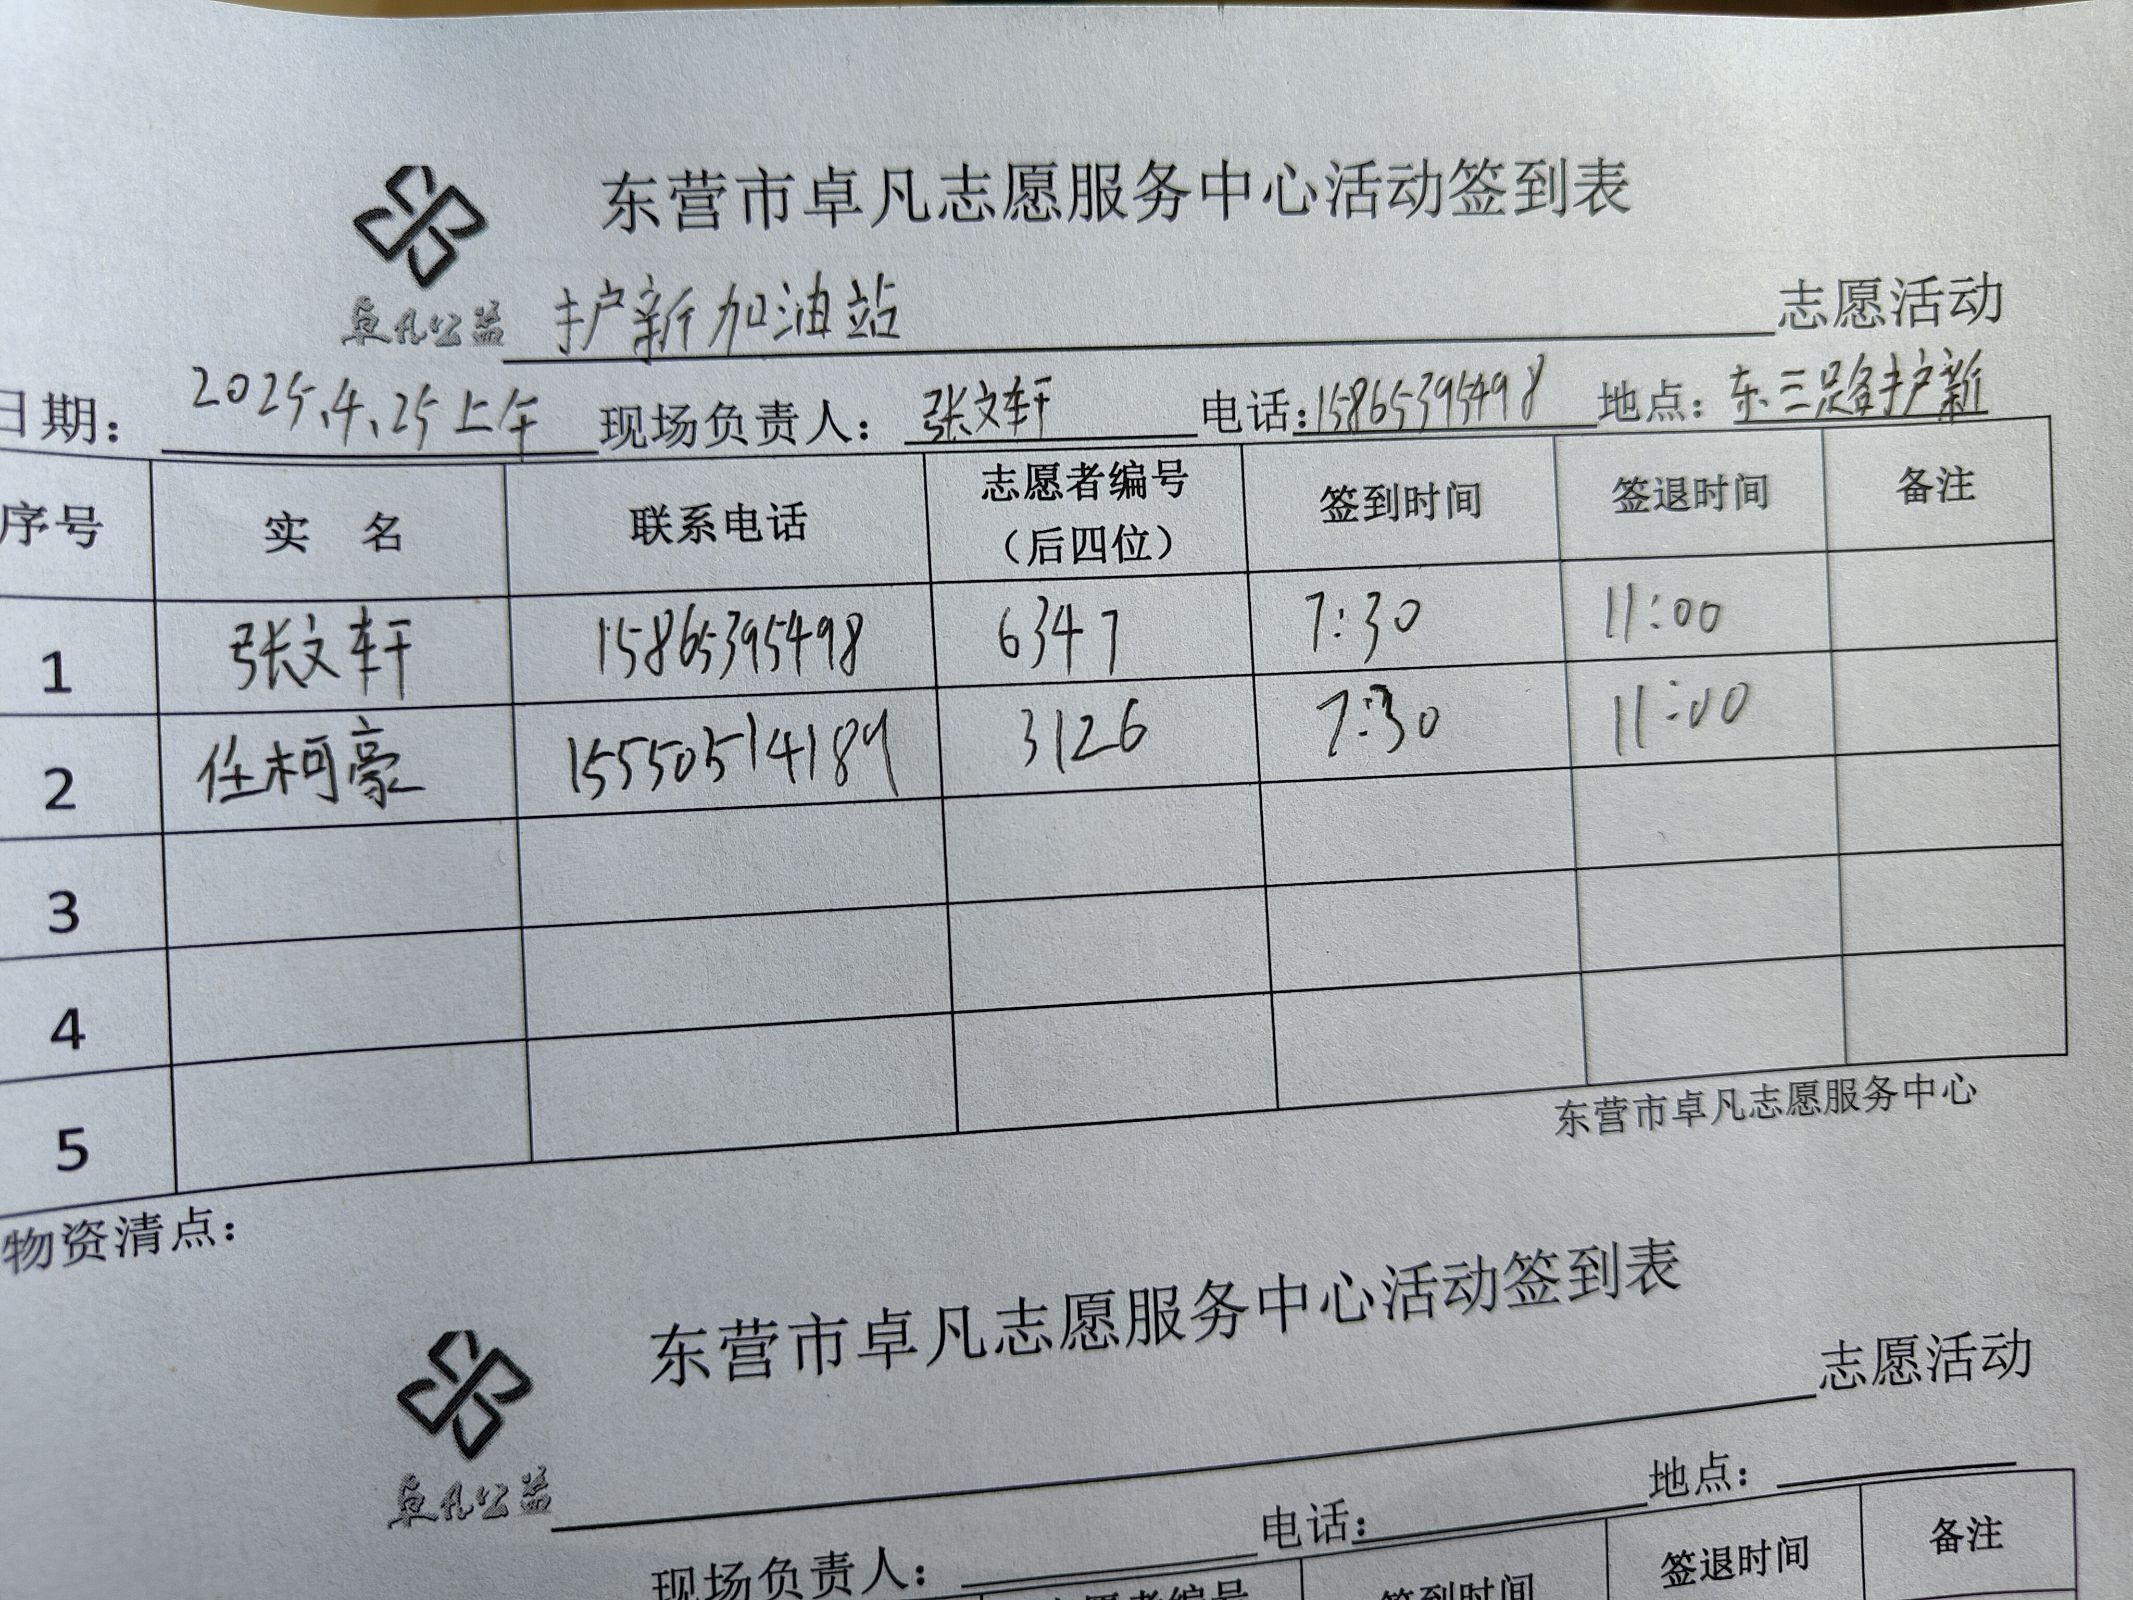 东营市卓凡志愿服务中心活动签到表
卓凡公益 护新加油站 志愿活动
日期： 2025.4.25上午 现场负责人： 张文轩 电话：15865395498 地点：东三路护新
序号 实 名 联系电话 志愿者编号（后四位） 签到时间 签退时间 备注
1 张文轩 15865395498 6347 7:30 11:00
2 任柯豪 15550514189 3126 7:30 11:00
3
4
5
东营市卓凡志愿服务中心
物资清点：
东营市卓凡志愿服务中心活动签到表
卓凡公益 志愿活动
现场负责人： 电话： 地点：
志愿者编号 签到时间 签退时间 备注